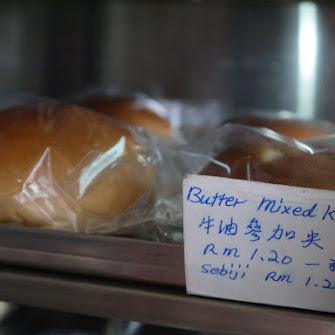 Butter mixed K
牛油參加央
RM 1.20 一
sebiji RM 1.2